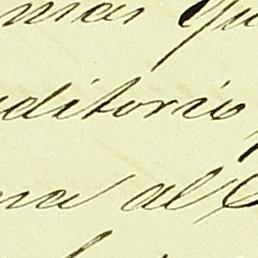 mas qu
uditorio,
na al